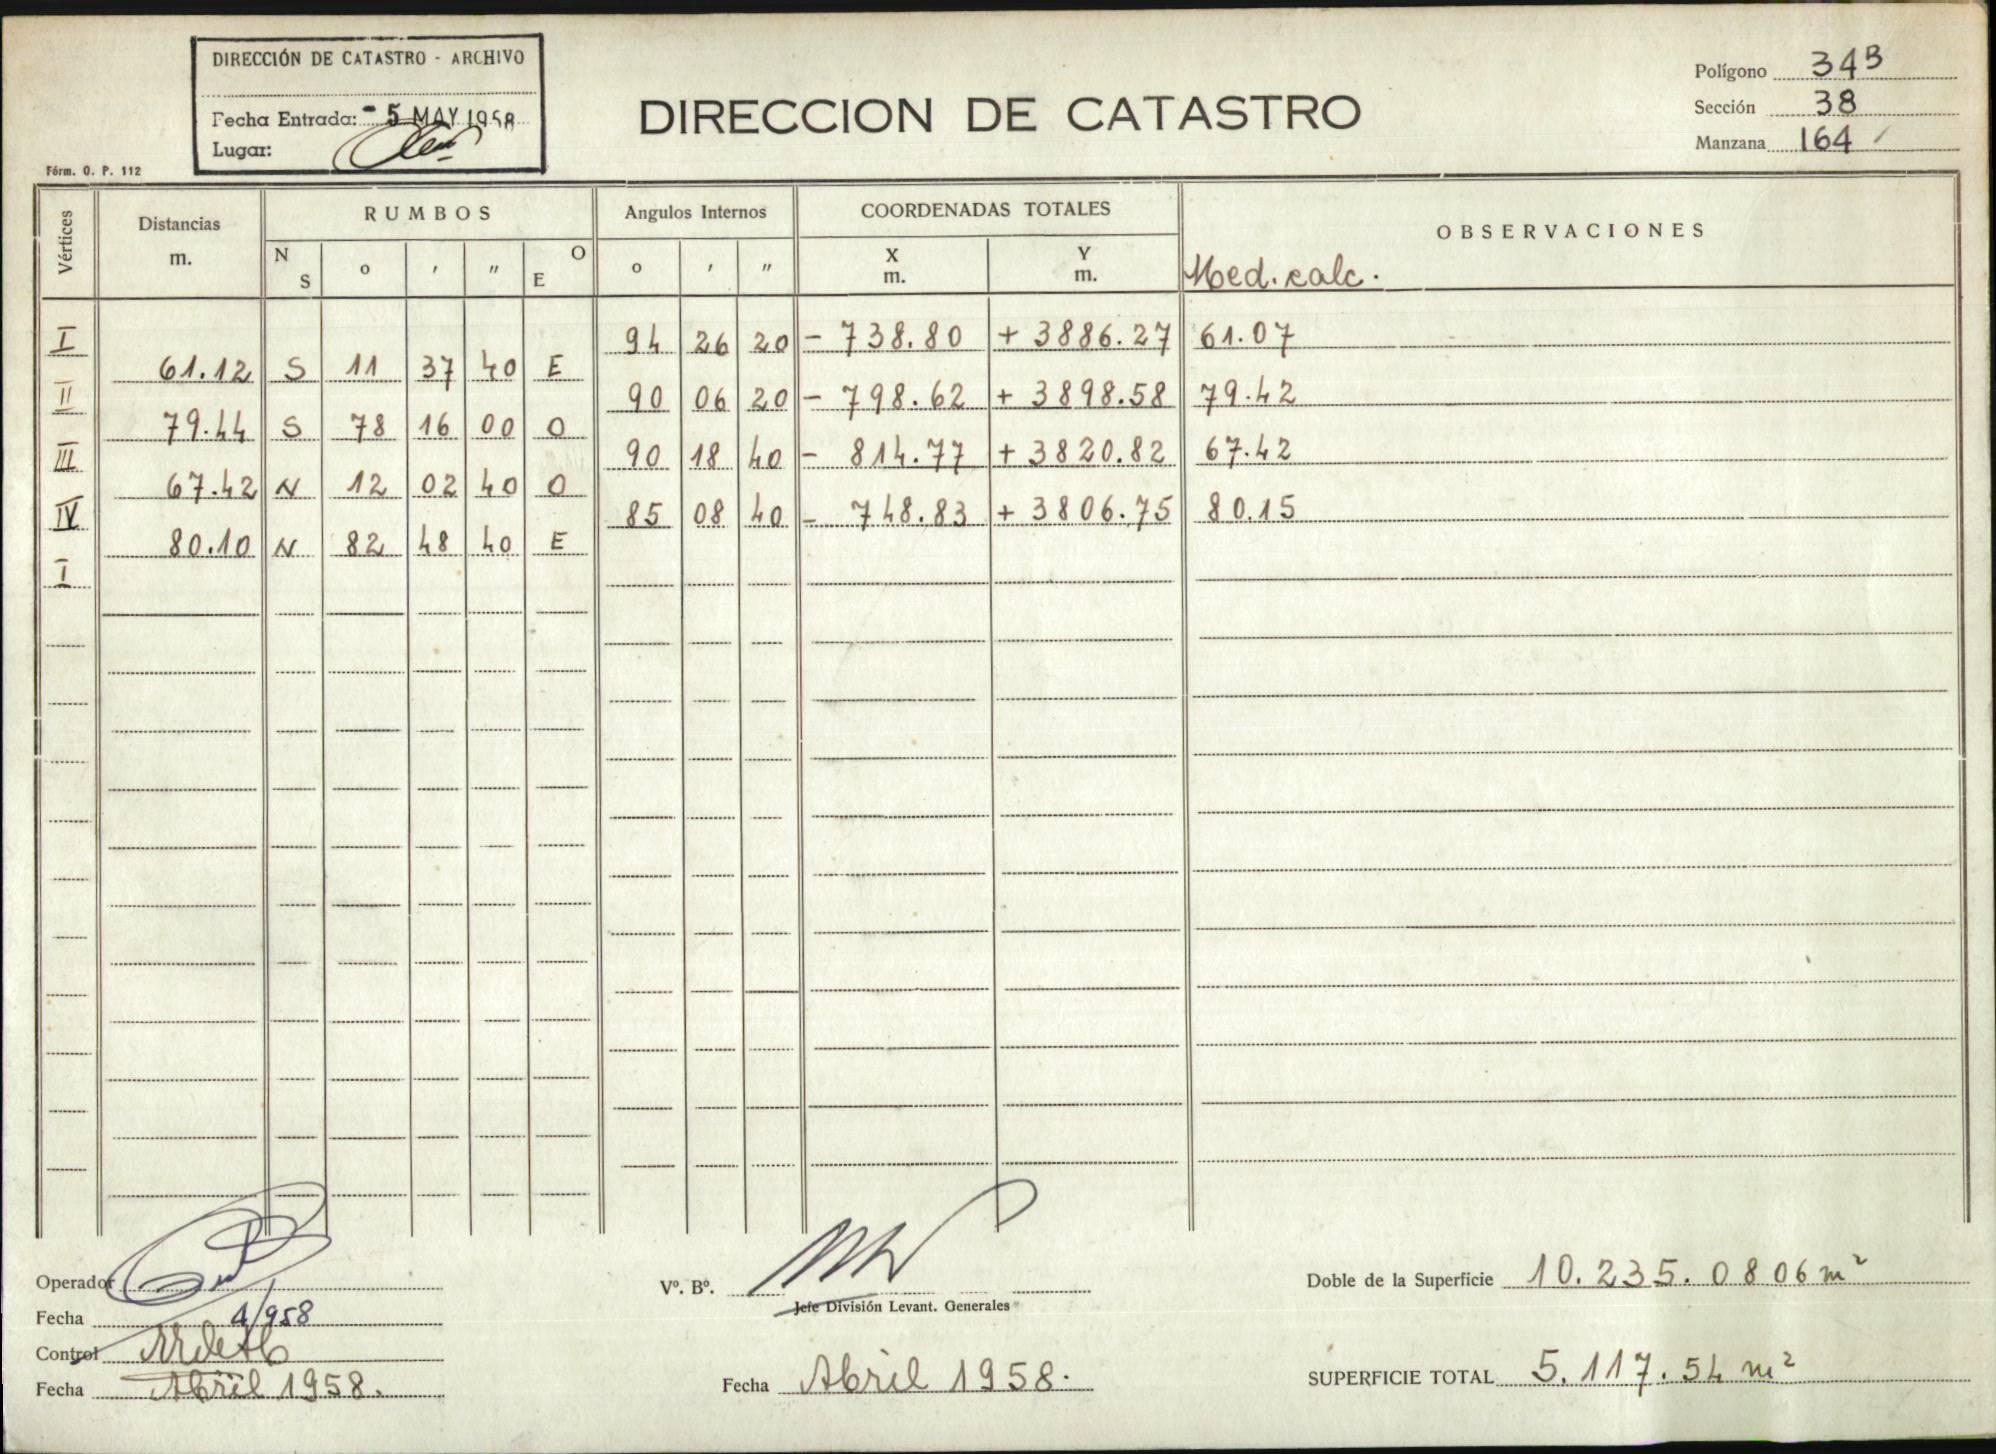 DIRECCIÓN DE CATASTRO - ARCHIVO
Fecha Entrada: - 5 MAY 1958
Lugar:
Fórm. O. P. 112
DIRECCION DE CATASTRO
Polígono 34B
Sección 38
Manzana 164
Vértices Distancias m. RUMBOS Angulos Internos COORDENADAS TOTALES OBSERVACIONES
N S o ' " O E o ' " X m. Y m. Med. calc.
I 94 26 20 - 738.80 + 3886.27 61.07
61.12 S 11 37 40 E
II 90 06 20 - 798.62 + 3898.58 79.42
79.44 S 78 16 00 O
III 90 18 40 - 814.77 + 3820.82 67.42
67.42 N 12 02 40 O
IV 85 08 40 - 748.83 + 3806.75 80.15
80.10 N 82 48 40 E
I
Operador
Fecha 4/958
Control
Fecha Abril 1958.
Vº. Bº.
Jefe División Levant. Generales
Fecha Abril 1958.
Doble de la Superficie 10.235.0806 m²
SUPERFICIE TOTAL 5.117.54 m²